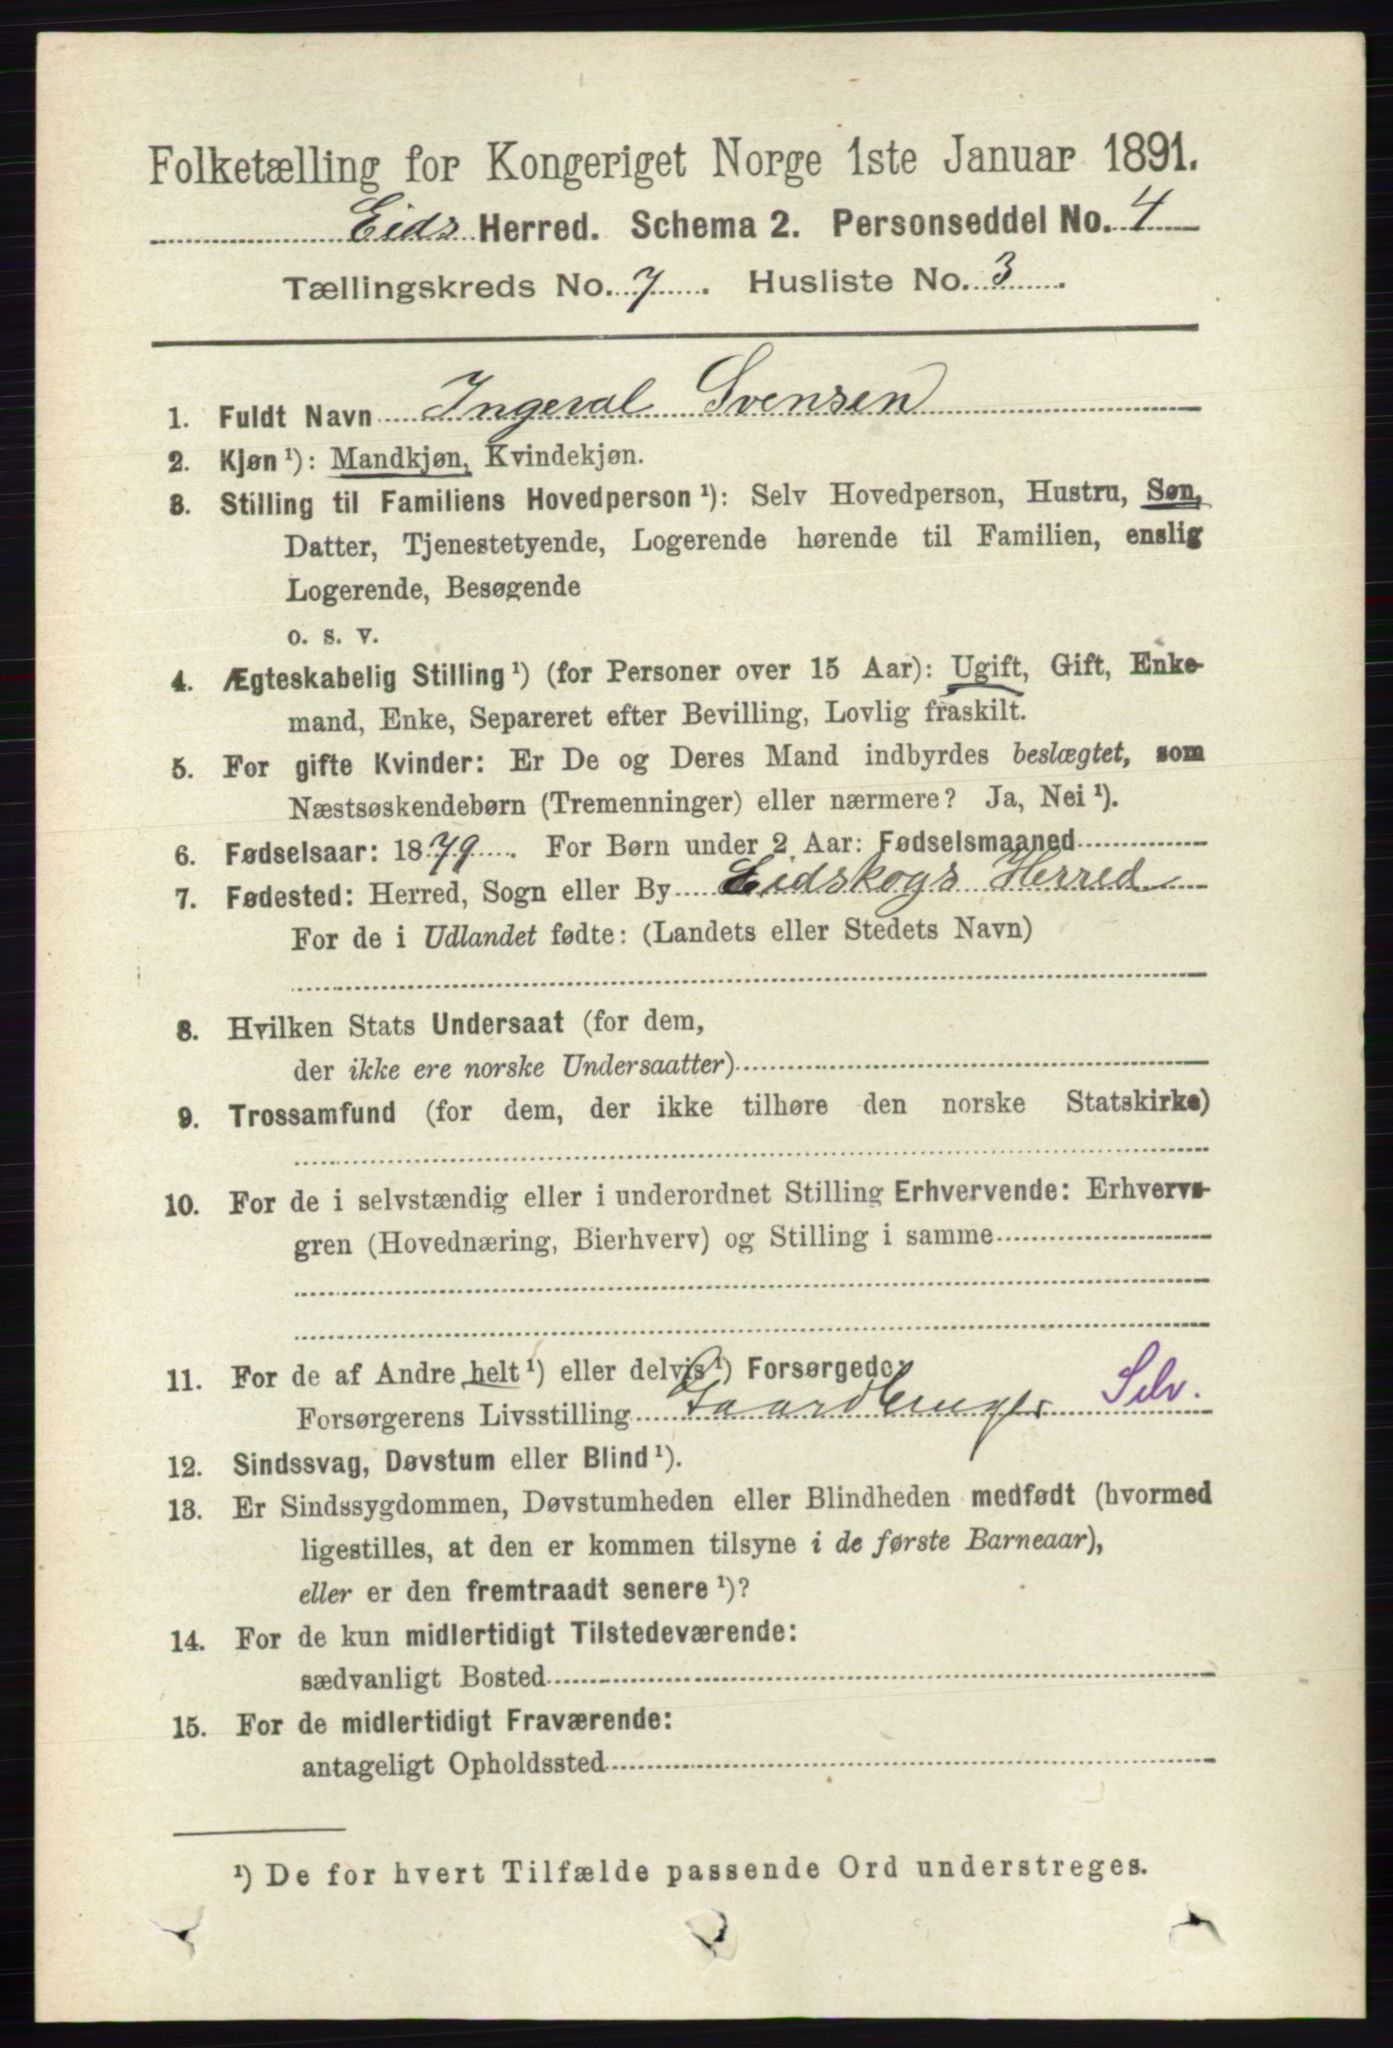 Folketælling for Kongeriget Norge 1ste Januar 1891.
Eids Herred. Schema 2. Personseddel No. 4
Tællingskreds No. 7. Husliste No. 3.
1. Fuldt Navn Ingeval Svensen
2. Kjøn ¹): Mandkjøn, Kvindekjøn.
3. Stilling til Familiens Hovedperson ¹): Selv Hovedperson, Hustru, Søn,
Datter, Tjenestetyende, Logerende hørende til Familien, enslig
Logerende, Besøgende
o. s. v.
4. Ægteskabelig Stilling ¹) (for Personer over 15 Aar): Ugift, Gift, Enke-
mand, Enke, Separeret efter Bevilling, Lovlig fraskilt.
5. For gifte Kvinder: Er De og Deres Mand indbyrdes beslægtet, som
Næstsøskendebørn (Tremenninger) eller nærmere? Ja, Nei ¹).
6. Fødselsaar: 1879. For Børn under 2 Aar: Fødselsmaaned
7. Fødested: Herred, Sogn eller By Eidskogs Herred
For de i Udlandet fødte: (Landets eller Stedets Navn)
8. Hvilken Stats Undersaat (for dem,
der ikke ere norske Undersaatter)
9. Trossamfund (for dem, der ikke tilhøre den norske Statskirke)
10. For de i selvstændig eller i underordnet Stilling Erhvervende: Erhvervs-
gren (Hovednæring, Bierhverv) og Stilling i samme
11. For de af Andre helt ¹) eller delvis ¹) Forsørgede:
Forsørgerens Livsstilling Gaardbruger Selv.
12. Sindssvag, Døvstum eller Blind ¹).
13. Er Sindssygdommen, Døvstumheden eller Blindheden medfødt (hvormed
ligestilles, at den er kommen tilsyne i de første Barneaar),
eller er den fremtraadt senere ¹)?
14. For de kun midlertidigt Tilstedeværende:
sædvanligt Bosted
15. For de midlertidigt Fraværende:
antageligt Opholdssted
¹) De for hvert Tilfælde passende Ord understreges.